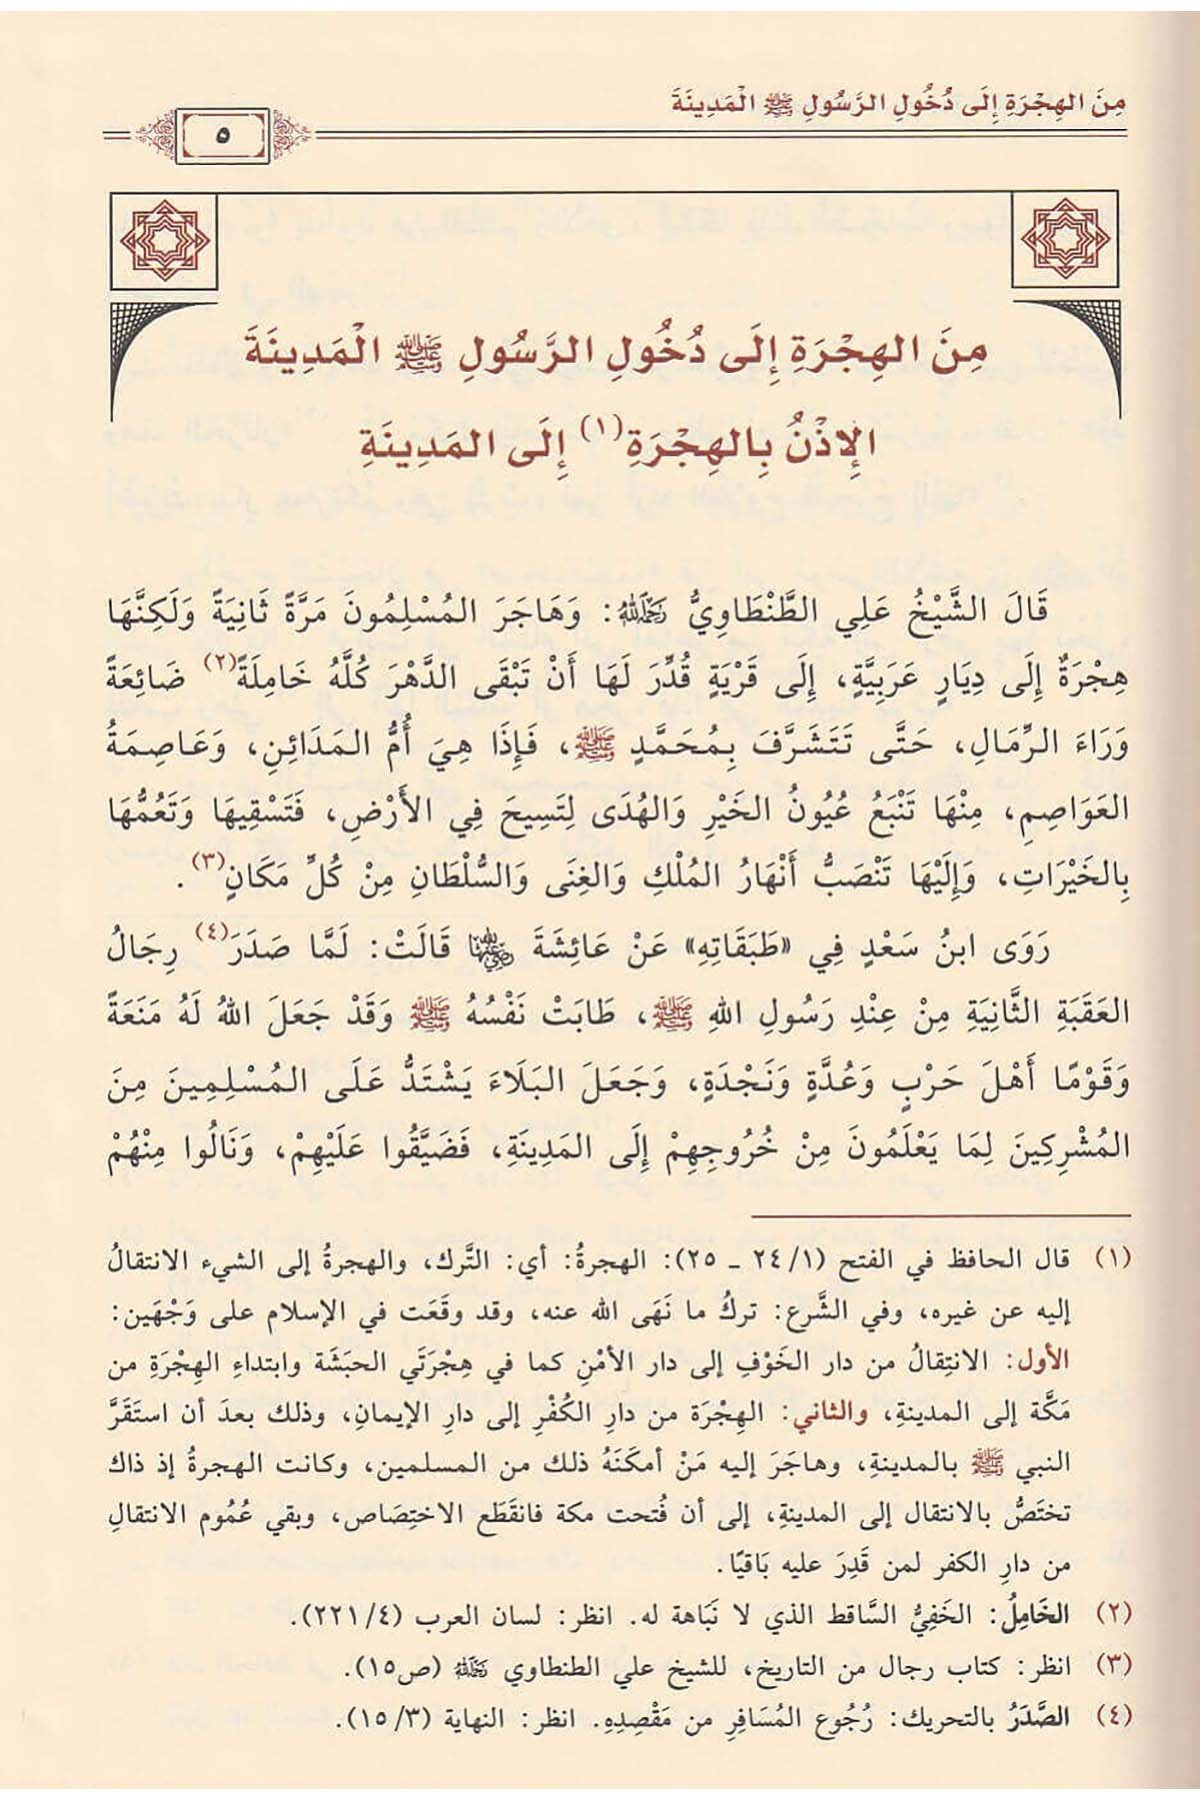 مِنَ الهِجْرَةِ إِلَى دُخُولِ الرَّسُولِ ﷺ الْمَدِينَةَ
٥
مِنَ الهِجْرَةِ إِلَى دُخُولِ الرَّسُولِ ﷺ الْمَدِينَةَ
الإِذْنُ بِالهِجْرَةِ(١) إِلَى المَدِينَةِ
قَالَ الشَّيْخُ عَلِي الطَّنْطَاوِيُّ رَحِمَهُ اللَّهُ: وَهَاجَرَ المُسْلِمُونَ مَرَّةً ثَانِيَةً وَلَكِنَّهَا
هِجْرَةٌ إِلَى دِيَارٍ عَرَبِيَّةٍ، إِلَى قَرْيَةٍ قُدِّرَ لَهَا أَنْ تَبْقَى الدَّهْرَ كُلَّهُ خَامِلَةً(٢) ضَائِعَةً
وَرَاءَ الرِّمَالِ، حَتَّى تَتَشَرَّفَ بِمُحَمَّدٍ ﷺ، فَإِذَا هِيَ أُمُّ المَدَائِنِ، وَعَاصِمَةُ
العَوَاصِمِ، مِنْهَا تَنْبَعُ عُيُونُ الخَيْرِ وَالهُدَى لِتَسِيحَ فِي الأَرْضِ، فَتَسْقِيهَا وَتَعُمُّهَا
بِالخَيْرَاتِ، وَإِلَيْهَا تَنْصَبُّ أَنْهَارُ المُلْكِ وَالغِنَى وَالسُّلْطَانِ مِنْ كُلِّ مَكَانٍ(٣).
رَوَى ابنُ سَعْدٍ فِي «طَبَقَاتِهِ» عَنْ عَائِشَةَ رَضِيَ اللَّهُ عَنْهَا قَالَتْ: لَمَّا صَدَرَ(٤) رِجَالُ
العَقَبَةِ الثَّانِيَةِ مِنْ عِنْدِ رَسُولِ اللهِ ﷺ، طَابَتْ نَفْسُهُ ﷺ وَقَدْ جَعَلَ اللهُ لَهُ مَنَعَةً
وَقَوْمًا أَهْلَ حَرْبٍ وَعُدَّةٍ وَنَجْدَةٍ، وَجَعَلَ البَلَاءَ يَشْتَدُّ عَلَى المُسْلِمِينَ مِنَ
المُشْرِكِينَ لِمَا يَعْلَمُونَ مِنْ خُرُوجِهِمْ إِلَى المَدِينَةِ، فَضَيَّقُوا عَلَيْهِمْ، وَنَالُوا مِنْهُمْ
(١) قال الحافظ في الفتح (٢٤/١ ـ ٢٥): الهجرةُ: أي: التَّرك، والهجرةُ إلى الشيء الانتقالُ
إليه عن غيره، وفي الشَّرع: تركُ ما نَهَى الله عنه، وقد وقَعَت في الإسلام على وَجْهَين:
الأول: الانتِقالُ من دار الخَوْفِ إلى دار الأمْنِ كما في هِجْرَتَي الحبَشَة وابتداءِ الهِجْرَةِ من
مَكَّة إلى المدينةِ، والثاني: الهِجْرَة من دارِ الكُفْر إلى دارِ الإيمانِ، وذلك بعدَ أن استَقَرَّ
النبي ﷺ بالمدينةِ، وهاجَرَ إليه مَنْ أمكَنَهُ ذلك من المسلمين، وكانت الهجرةُ إذ ذاك
تختَصُّ بالانتقال إلى المدينةِ، إلى أن فُتحت مكة فانقَطَع الاختِصَاص، وبقي عُمُوم الانتقالِ
من دارِ الكفر لمن قَدِرَ عليه بَاقيًا.
(٢) الخَامِلُ: الخَفِيُّ السَّاقط الذي لا نَبَاهة له. انظر: لسان العرب (٢٢١/٤).
(٣) انظر: كتاب رجال من التاريخ، للشيخ علي الطنطاوي رَحِمَهُ اللَّهُ (ص١٥).
(٤) الصَّدَرُ بالتحريك: رُجُوع المُسَافِرِ من مَقْصِدِهِ. انظر: النهاية (١٥/٣).